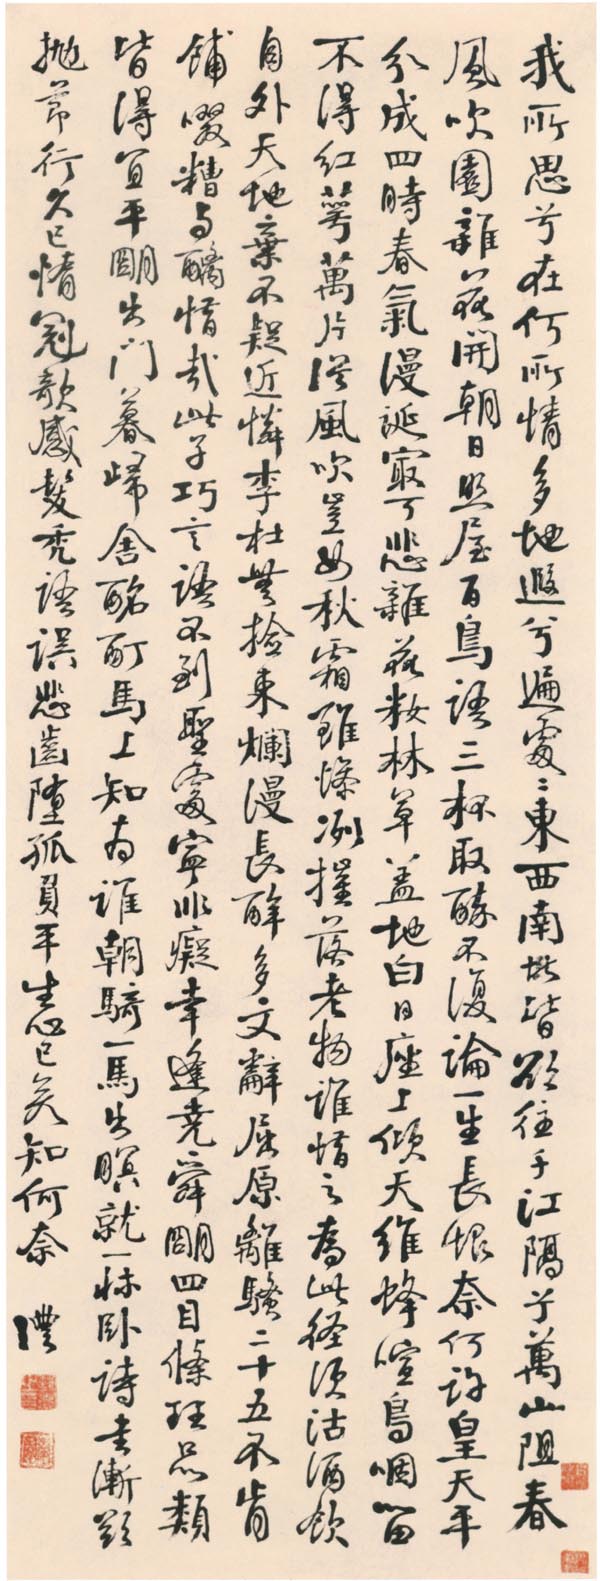 我所思兮在何所情多地遐兮遍處々東西南北皆欲往千江隔兮萬山阻春
風吹園雜花開朝日照屋百鳥語三杯取醉不復論一生長恨奈何許皇天平
分成四時春氣漫誕最可悲雜花妝林草蓋地白日座上傾天維蜂喧鳥咽留
不得紅萼萬片從風吹豈如秋霜雖慘冽摧落老物誰惜之為此徑須沽酒飲
自外天地棄不疑近憐李杜無撿束爛漫長醉多文辭屈原離騷二十五不肯
餔啜糟與醨惜哉此子巧言語不到聖處寧非癡幸逢堯舜明四目條理品類
皆得宜平明出門暮歸舍酩酊馬上知為誰朝騎一馬出暝就一床臥詩書漸欲
拋節行久已惰冠欹感髮禿語誤悲齒墮孤負平生心已矣知何奈